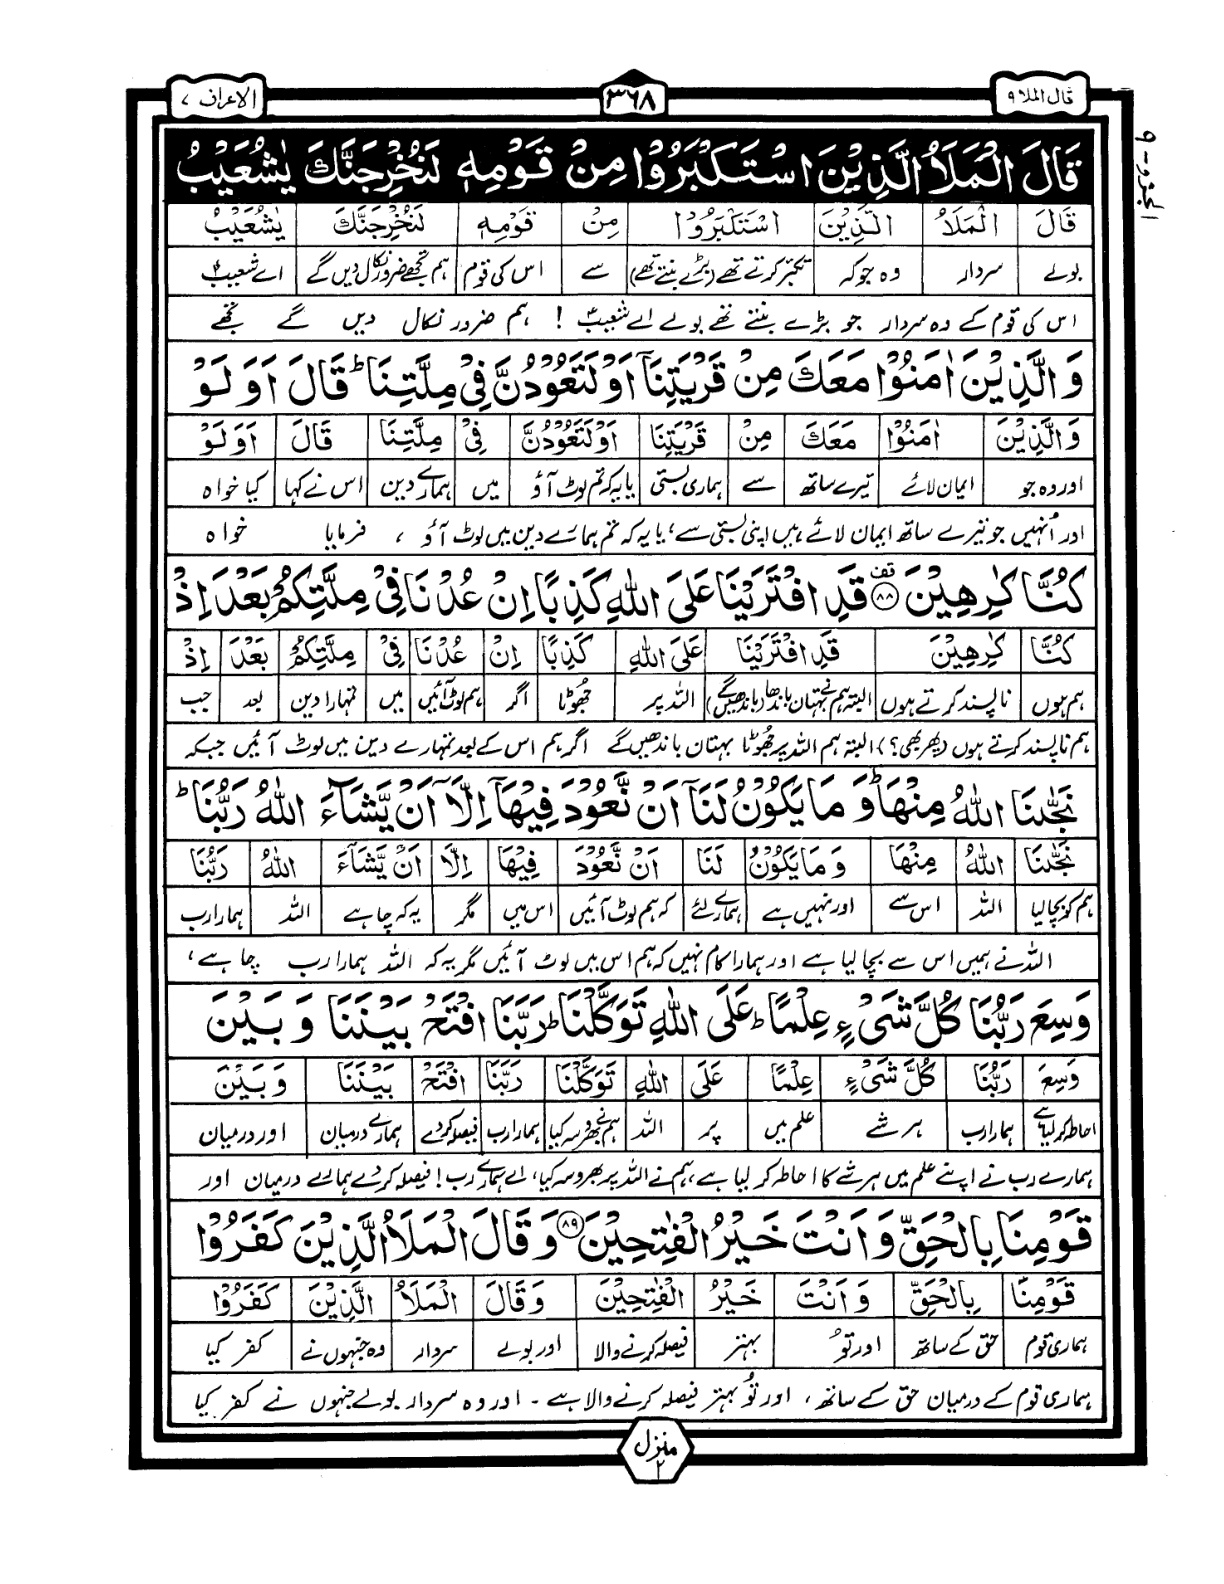 قال الملا ٩
٣٦٨
الاعراف ٧
الجزو - ٩
قَالَ الْمَلَاُ الَّذِيْنَ اسْتَكْبَرُوْا مِنْ قَوْمِهٖ لَنُخْرِجَنَّكَ يٰشُعَيْبُ
قَالَ الْمَلَاُ الَّذِيْنَ اسْتَكْبَرُوْا مِنْ قَوْمِهٖ لَنُخْرِجَنَّكَ يٰشُعَيْبُ
بولے سردار وہ جو کہ تکبر کرتے تھے (بڑے بنتے تھے) سے اس کی قوم ہم تجھے ضرور نکال دیں گے اے شعیبؑ
اس کی قوم کے وہ سردار جو بڑے بنتے تھے بولے اے شعیبؑ ! ہم ضرور نکال دیں گے تجھے
وَالَّذِيْنَ اٰمَنُوْا مَعَكَ مِنْ قَرْيَتِنَآ اَوْ لَتَعُوْدُنَّ فِيْ مِلَّتِنَا ؕ قَالَ اَوَ لَوْ
وَالَّذِيْنَ اٰمَنُوْا مَعَكَ مِنْ قَرْيَتِنَا اَوْ لَتَعُوْدُنَّ فِيْ مِلَّتِنَا قَالَ اَوَ لَوْ
اور وہ جو ایمان لائے تیرے ساتھ سے ہماری بستی یا یہ کہ تم لوٹ آؤ میں ہمارے دین اس نے کہا کیا خواہ
اور اُنہیں جو تیرے ساتھ ایمان لائے ہیں اپنی بستی سے، یا یہ کہ تم ہمارے دین میں لوٹ آؤ ، فرمایا خواہ
كُنَّا كٰرِهِيْنَ ﴿٨٨﴾ قف قَدِ افْتَرَيْنَا عَلَى اللّٰهِ كَذِبًا اِنْ عُدْنَا فِيْ مِلَّتِكُمْ بَعْدَ اِذْ
كُنَّا كٰرِهِيْنَ قَدِ افْتَرَيْنَا عَلَى اللّٰهِ كَذِبًا اِنْ عُدْنَا فِيْ مِلَّتِكُمْ بَعْدَ اِذْ
ہم ہوں ناپسند کرتے ہوں البتہ ہم نے بہتان باندھا (باندھیں گے) اللہ پر جھُوٹا اگر ہم لوٹ آئیں میں تمہارا دین بعد جب
ہم ناپسند کرتے ہوں (پھر بھی؟) البتہ ہم اللہ پر جھُوٹا بہتان باندھیں گے اگر ہم اس کے بعد تمہارے دین میں لوٹ آئیں جبکہ
نَجّٰىنَا اللّٰهُ مِنْهَا ؕ وَ مَا يَكُوْنُ لَنَآ اَنْ نَّعُوْدَ فِيْهَآ اِلَّآ اَنْ يَّشَآءَ اللّٰهُ رَبُّنَا ؕ
نَجّٰىنَا اللّٰهُ مِنْهَا وَ مَا يَكُوْنُ لَنَا اَنْ نَّعُوْدَ فِيْهَا اِلَّا اَنْ يَّشَآءَ اللّٰهُ رَبُّنَا
ہم کو بچا لیا اللہ اس سے اور نہیں ہے ہمارے لئے کہ ہم لوٹ آئیں اس میں مگر یہ کہ چاہے اللہ ہمارا رب
اللہ نے ہمیں اس سے بچا لیا ہے اور ہمارا کام نہیں کہ ہم اس میں لوٹ آئیں مگر یہ کہ اللہ ہمارا رب چاہے،
وَسِعَ رَبُّنَا كُلَّ شَيْءٍ عِلْمًا ؕ عَلَى اللّٰهِ تَوَكَّلْنَا ؕ رَبَّنَا افْتَحْ بَيْنَنَا وَ بَيْنَ
وَسِعَ رَبُّنَا كُلَّ شَيْءٍ عِلْمًا عَلَى اللّٰهِ تَوَكَّلْنَا رَبَّنَا افْتَحْ بَيْنَنَا وَ بَيْنَ
احاطہ کر لیا ہے ہمارا رب ہر شے علم میں پر اللہ ہم نے بھروسہ کیا ہمارا رب فیصلہ کر دے ہمارے درمیان اور درمیان
ہمارے رب نے اپنے علم میں ہر شے کا احاطہ کر لیا ہے، ہم نے اللہ پر بھروسہ کیا، اے ہمارے رب! فیصلہ کر دے ہمارے درمیان اور
قَوْمِنَا بِالْحَقِّ وَ اَنْتَ خَيْرُ الْفٰتِحِيْنَ ﴿٨٩﴾ وَ قَالَ الْمَلَاُ الَّذِيْنَ كَفَرُوْا
قَوْمِنَا بِالْحَقِّ وَ اَنْتَ خَيْرُ الْفٰتِحِيْنَ وَ قَالَ الْمَلَاُ الَّذِيْنَ كَفَرُوْا
ہماری قوم حق کے ساتھ اور تو بہتر فیصلہ کرنے والا اور بولے سردار وہ جنہوں نے کفر کیا
ہماری قوم کے درمیان حق کے ساتھ، اور تُو بہتر فیصلہ کرنے والا ہے ۔ اور وہ سردار بولے جنہوں نے کفر کیا
منزل ٢